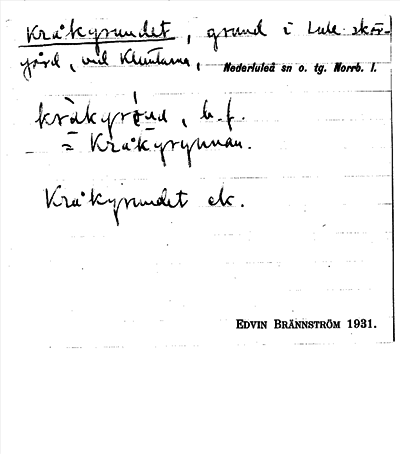 Kråkgrundet, grund i Lule skär-
gård, vid Kluntarna,
Nederluleå sn o. tg. Norrb. l.
kråkgrönd, b. f.
= Kråkgrynnan.
Kråkgrundet ek.
EDVIN BRÄNNSTRÖM 1931.